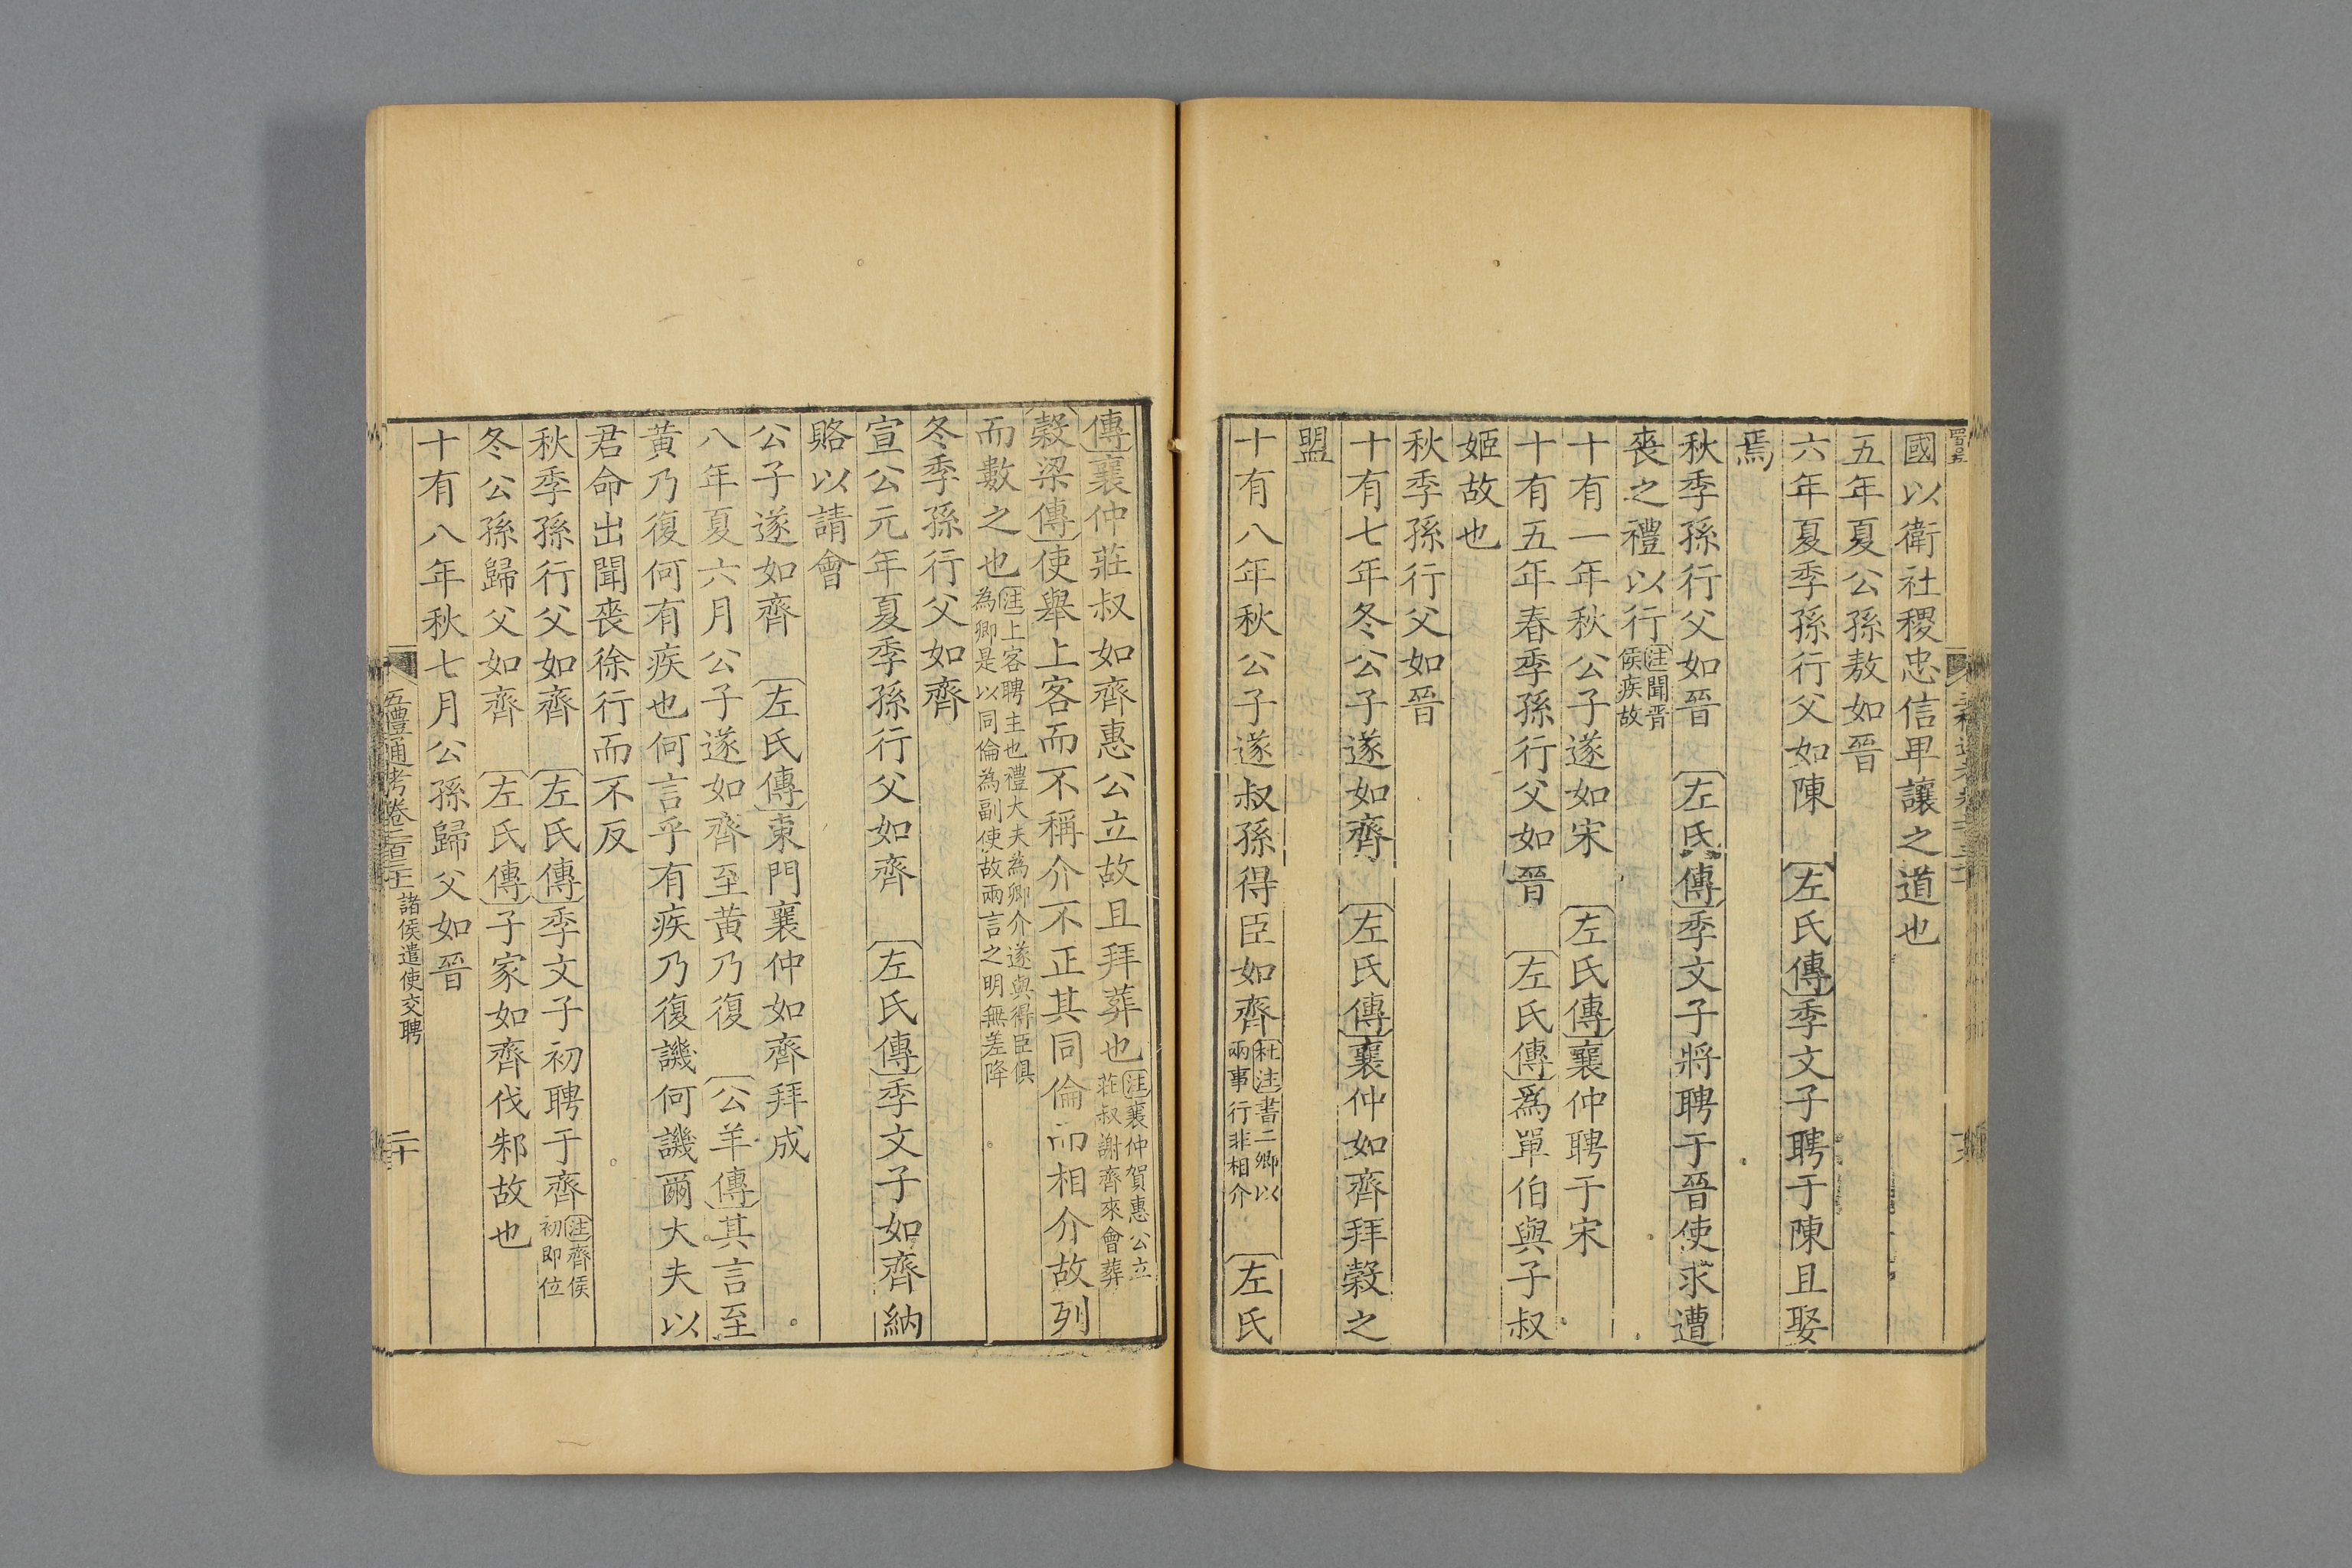 國以衛社稷忠信卑讓之道也
五年夏公孫敖如晉
六年夏季孫行父如陳 左氏傳季文子聘于陳且娶
焉
秋季孫行父如晉 左氏傳季文子將聘于晉使求遭
喪之禮以行注聞晉侯疾故
十有一年秋公子遂如宋 左氏傳襄仲聘于宋
十有五年春季孫行父如晉 左氏傳爲單伯與子叔
姬故也
秋季孫行父如晉
十有七年冬公子遂如齊 左氏傳襄仲如齊拜穀之
盟
十有八年秋公子遂叔孫得臣如齊杜注書二卿以兩事行非相介 左氏
傳襄仲莊叔如齊惠公立故且拜葬也注襄仲賀惠公立莊叔謝齊來會葬
穀梁傳使舉上客而不稱介不正其同倫而相介故列
而數之也注上客聘主也禮大夫為卿介遂與得臣俱為卿是以同倫為副使故兩言之明無差降
冬季孫行父如齊
宣公元年夏季孫行父如齊 左氏傳季文子如齊納
賂以請會
公子遂如齊 左氏傳東門襄仲如齊拜成
八年夏六月公子遂如齊至黄乃復 公羊傳其言至
黄乃復何有疾也何言乎有疾乃復譏何譏爾大夫以
君命出聞喪徐行而不反
秋季孫行父如齊 左氏傳季文子初聘于齊注齊侯初即位
冬公孫歸父如齊 左氏傳子家如齊伐邾故也
十有八年秋七月公孫歸父如晉
五禮通考卷二百三十二 諸侯遣使交聘 二十